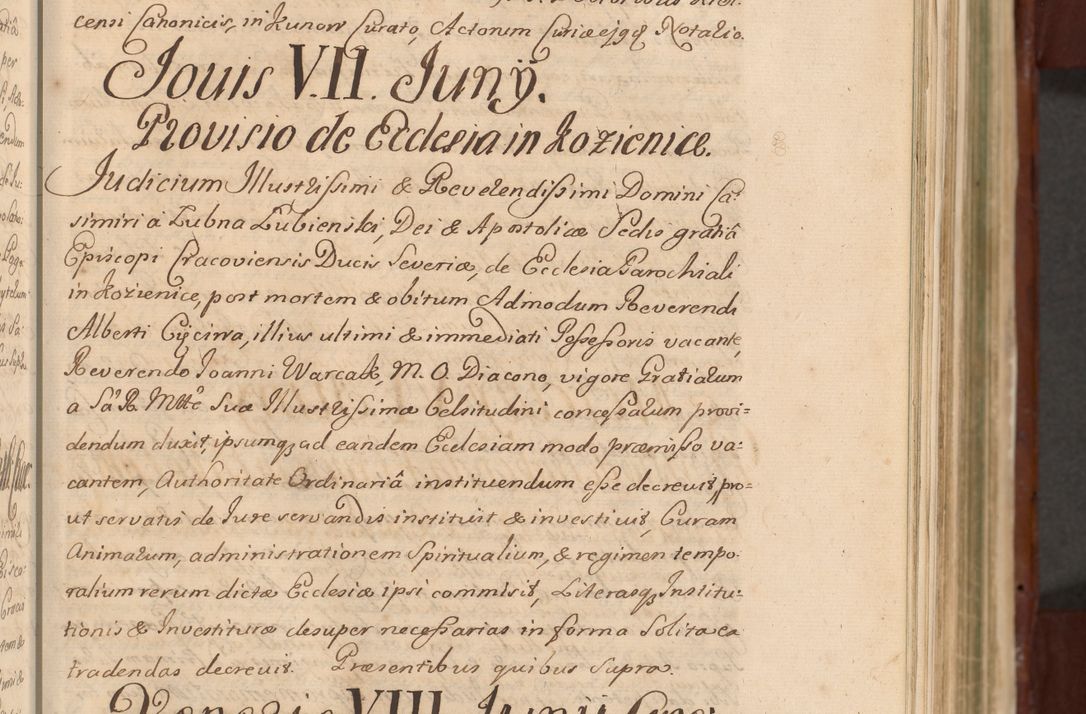 censi Canonicis, in Kunow Curato, Actorum Curiæ ejqz Notario.
Jouis VII. Junÿ.
Provisio de Ecclesia in Kozienice.
Judicium Illustrissimi & Reverendissimi Domini Ca-
simiri à Lubna Lubienski, Dei & Apostolicæ Sedis gratiâ
Episcopi Cracoviensis Ducis Severiæ, de Ecclesia Parochiali
in Kozienice, post mortem & obitum Admodum Reverendi
Alberti illius ultimi & immediati Possessoris vacante,
Reverendo Joanni M. O. Diacono, vigore Gratiarum
a Sa R. Mtte Suæ Illustrissimæ Celsitudini concessarum provi=
dendum duxit, ipsumqz ad eandem Ecclesiam modo præmisso va=
cantem, Authoritate Ordinariâ instituendum esse decrevit, pro=
ut servatis de Jure servandis instituit & investivit, Curam
Animarum, administrationem Spiritualium, & regimen tempo-
ralium rerum dictæ Ecclesiæ ipsi commisit, Literasqz Institu=
tionis & Investituræ desuper necessarias in forma Solita ex
tradendas decrevit. Præsentibus quibus supra.
Veneris VIII Junÿ